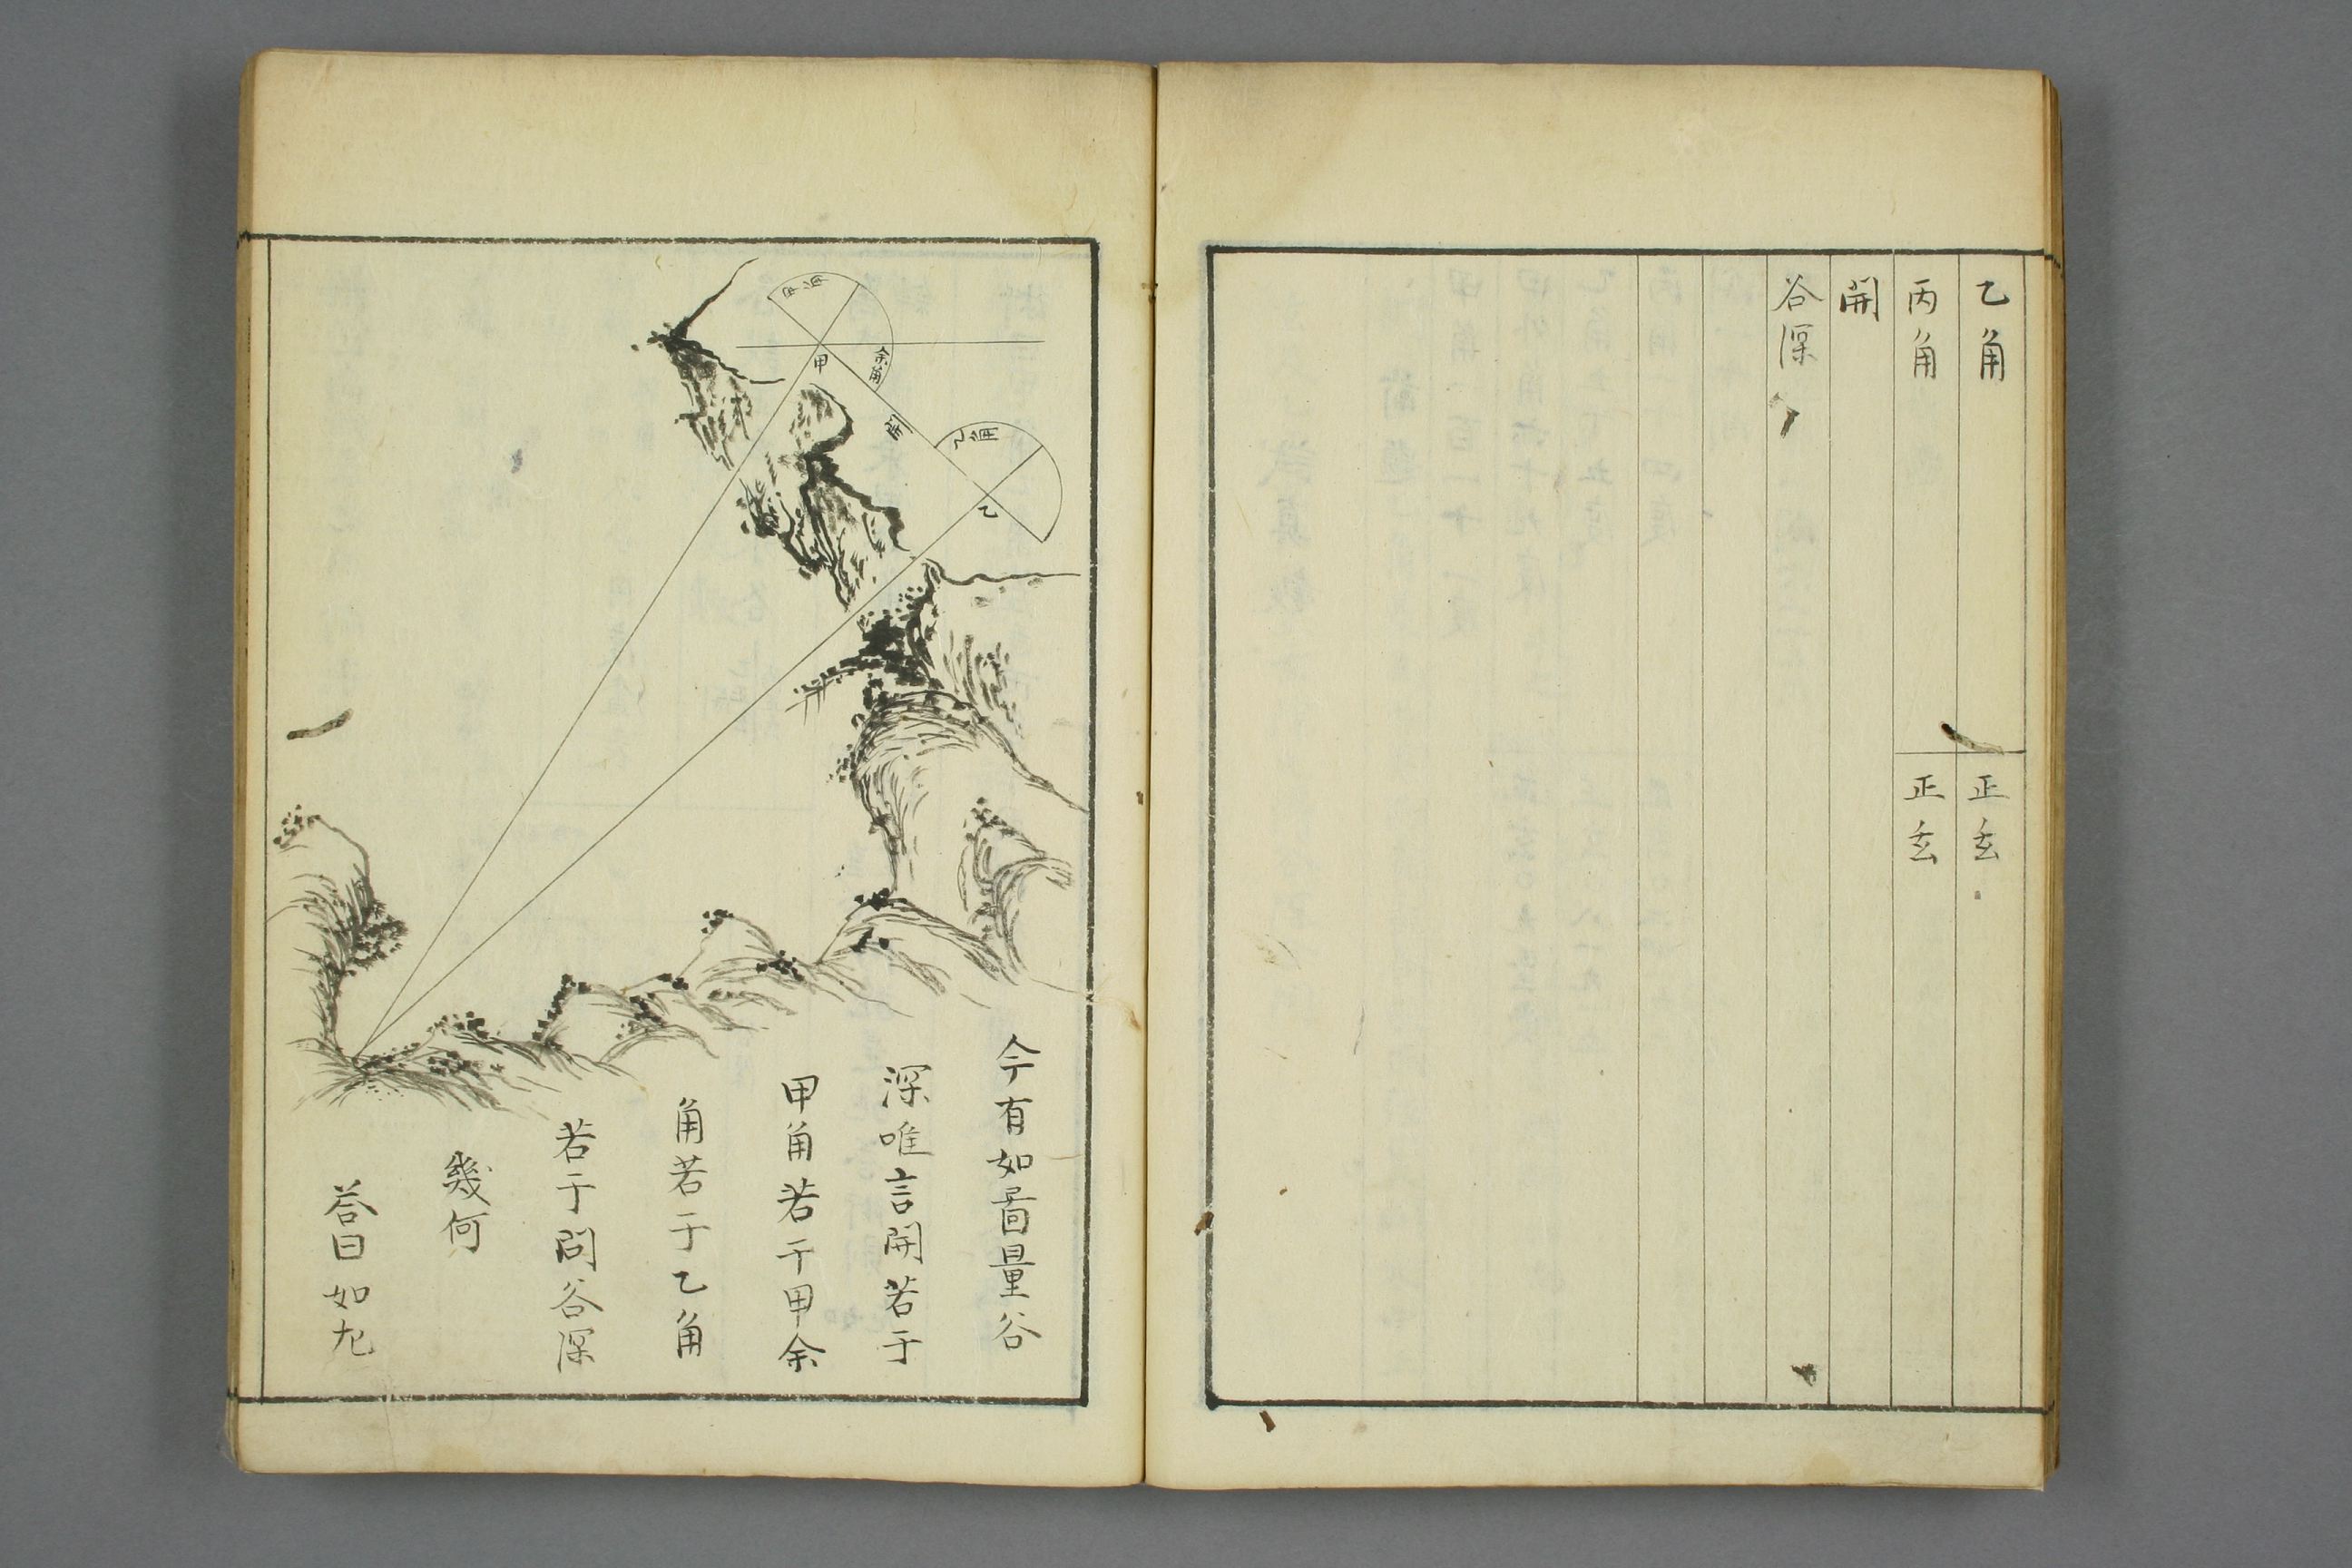 乙角 正玄
丙角 正玄
開
谷深
甲角
余角
甲
開
乙角
乙
今有如啚量谷
深唯言開若于
甲角若干甲余
角若于乙角
若于問谷深
幾何
荅曰如九